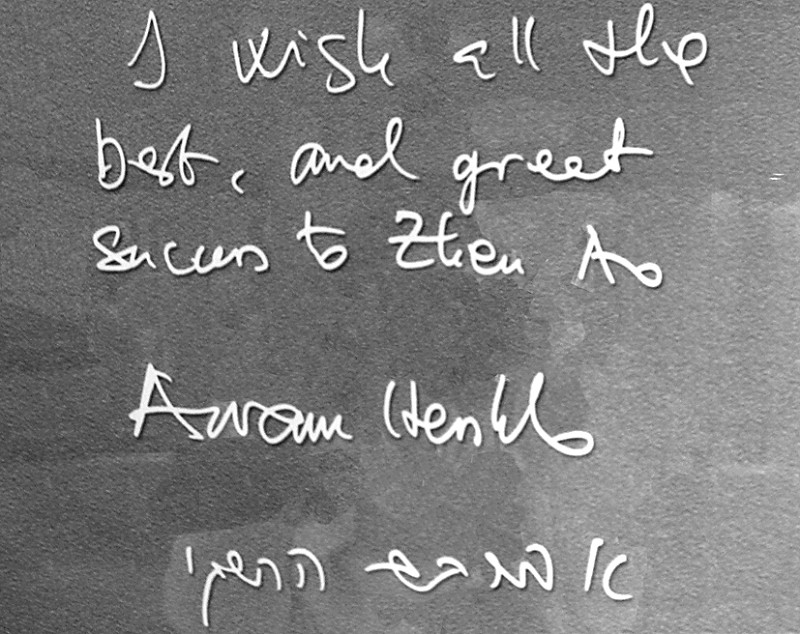 I wish all the
best, and great
success to Zhen Ao
Avram Hershko